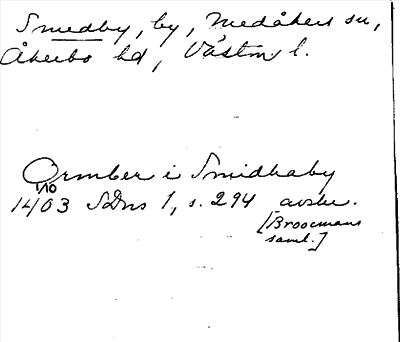 Smedby, by, Medåkers sn,
Åkerbo hd, Västm l.
Ormber i Smidhaby
1/10 1403 SDns 1, s. 294 avskr.
[Broocmans
saml.]